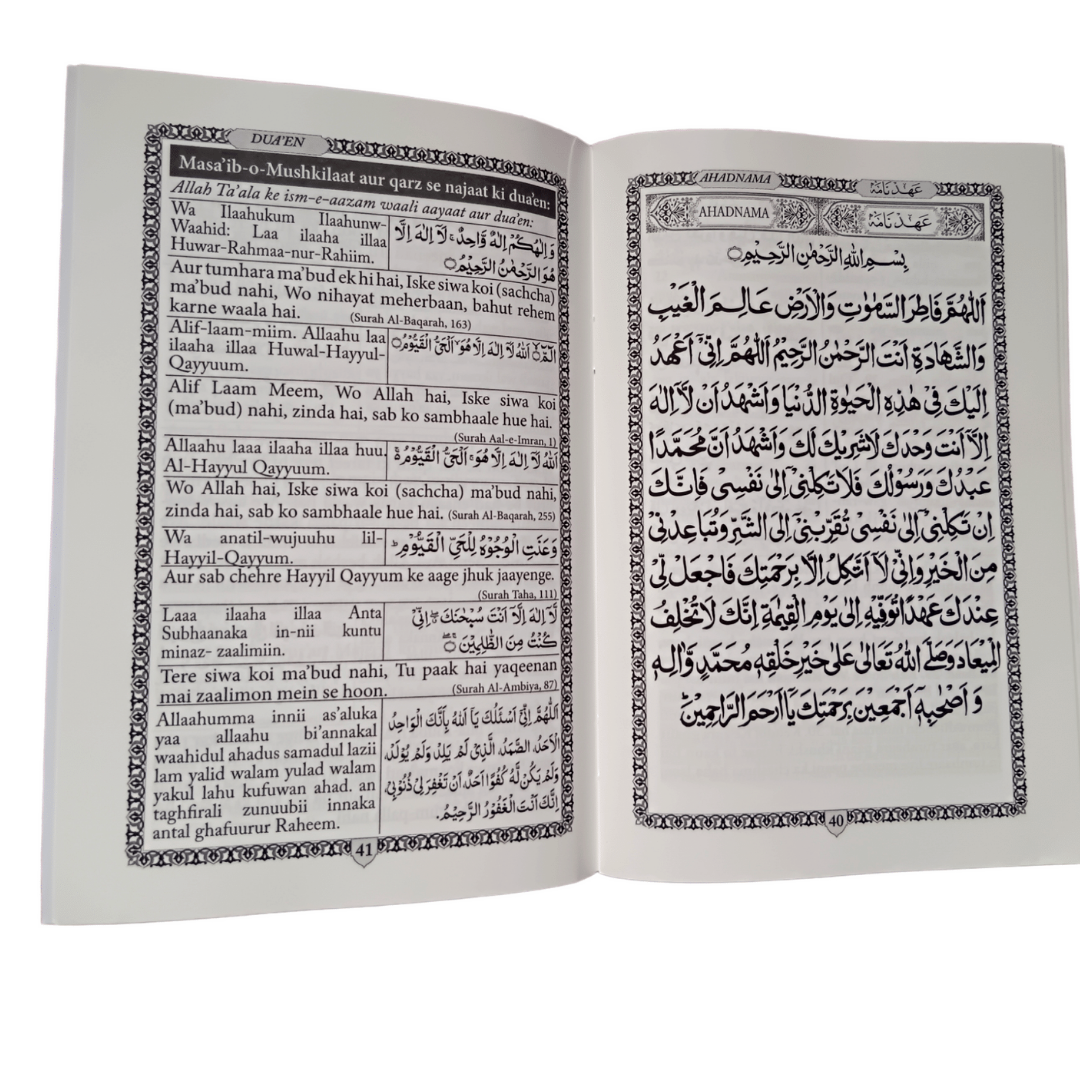 AHADNAMA
عَهْدْ نَامَهْ
AHADNAMA
عَهْدْ نَامَهْ
بِسْمِ اللهِ الرَّحْمٰنِ الرَّحِيْمِ○
اَللّٰهُمَّ فَاطِرَ السَّمٰوٰتِ وَالْاَرْضِ عَالِمَ الْغَيْبِ
وَالشَّهَادَةِ اَنْتَ الرَّحْمٰنُ الرَّحِيْمُ اَللّٰهُمَّ اِنِّيْ اَعْهَدُ
اِلَيْكَ فِيْ هٰذِهِ الْحَيٰوةِ الدُّنْيَا وَاَشْهَدُ اَنْ لَّآ اِلٰهَ
اِلَّآ اَنْتَ وَحْدَكَ لَاشَرِيْكَ لَكَ وَاَشْهَدُ اَنَّ مُحَمَّدًا
عَبْدُكَ وَرَسُوْلُكَ فَلَا تَكِلْنِيْ اِلٰى نَفْسِيْ فَاِنَّكَ
اِنْ تَكِلْنِيْ اِلٰى نَفْسِيْ تُقَرِّبْنِيْ اِلَى الشَّرِّ وَتُبَاعِدْنِيْ
مِنَ الْخَيْرِ وَاِنِّيْ لَآ اَتَّكِلُ اِلَّا بِرَحْمَتِكَ فَاجْعَلْ لِّيْ
عِنْدَكَ عَهْدًا تُوَفِّيْهِ اِلٰى يَوْمِ الْقِيٰمَةِ اِنَّكَ لَا تُخْلِفُ
الْمِيْعَادَ وَصَلَّى اللهُ تَعَالٰى عَلٰى خَيْرِ خَلْقِهٖ مُحَمَّدٍ وَّاٰلِهٖ
وَ اَصْحٰبِهٖٓ اَجْمَعِيْنَ بِرَحْمَتِكَ يَآ اَرْحَمَ الرَّاحِمِيْنَ
40
DUA'EN
Masa'ib-o-Mushkilaat aur qarz se najaat ki dua'en:
Allah Ta'ala ke ism-e-aazam waali aayaat aur dua'en:
Wa Ilaahukum Ilaahunw-
Waahid: Laa ilaaha illaa
Huwar-Rahmaa-nur-Rahiim.
وَاِلٰهُكُمْ اِلٰهٌ وَّاحِدٌ ۚ لَآ اِلٰهَ اِلَّا
هُوَ الرَّحْمٰنُ الرَّحِيْمُ○
Aur tumhara ma'bud ek hi hai, Iske siwa koi (sachcha)
ma'bud nahi, Wo nihayat meherbaan, bahut rehem
karne waala hai. (Surah Al-Baqarah, 163)
Alif-laam-miim. Allaahu laa
ilaaha illaa Huwal-Hayyul-
Qayyuum.
الٓمّٓ○ اللهُ لَآ اِلٰهَ اِلَّا هُوَ ۙ الْحَيُّ الْقَيُّوْمُ○
Alif Laam Meem, Wo Allah hai, Iske siwa koi
(ma'bud) nahi, zinda hai, sab ko sambhaale hue hai.
(Surah Aal-e-Imran, 1)
Allaahu laaa ilaaha illaa huu.
Al-Hayyul Qayyuum.
اَللهُ لَآ اِلٰهَ اِلَّا هُوَ ۚ اَلْحَيُّ الْقَيُّوْمُ
Wo Allah hai, Iske siwa koi (sachcha) ma'bud nahi,
zinda hai, sab ko sambhaale hue hai. (Surah Al-Baqarah, 255)
Wa anatil-wujuuhu lil-
Hayyil-Qayyum.
وَعَنَتِ الْوُجُوْهُ لِلْحَيِّ الْقَيُّوْمِ ؕ
Aur sab chehre Hayyil Qayyum ke aage jhuk jaayenge.
(Surah Taha, 111)
Laaa ilaaha illaa Anta
Subhaanaka in-nii kuntu
minaz- zaalimiin.
لَآ اِلٰهَ اِلَّآ اَنْتَ سُبْحٰنَكَ ۖ اِنِّيْ
كُنْتُ مِنَ الظّٰلِمِيْنَ○
Tere siwa koi ma'bud nahi, Tu paak hai yaqeenan
mai zaalimon mein se hoon. (Surah Al-Ambiya, 87)
Allaahumma innii as'aluka
yaa allaahu bi'annakal
waahidul ahadus samadul lazii
lam yalid walam yulad walam
yakul lahu kufuwan ahad. an
taghfirali zunuubii innaka
antal ghafuurur Raheem.
اَللّٰهُمَّ اِنِّيْ اَسْئَلُكَ يَا اَللهُ بِاَنَّكَ الْوَاحِدُ
الْاَحَدُ الصَّمَدُ الَّذِيْ لَمْ يَلِدْ وَلَمْ يُوْلَدْ،
وَلَمْ يَكُنْ لَّهٗ كُفُوًا اَحَدٌ، اَنْ تَغْفِرَ لِيْ ذُنُوْبِيْ،
اِنَّكَ اَنْتَ الْغَفُوْرُ الرَّحِيْمُ.
41